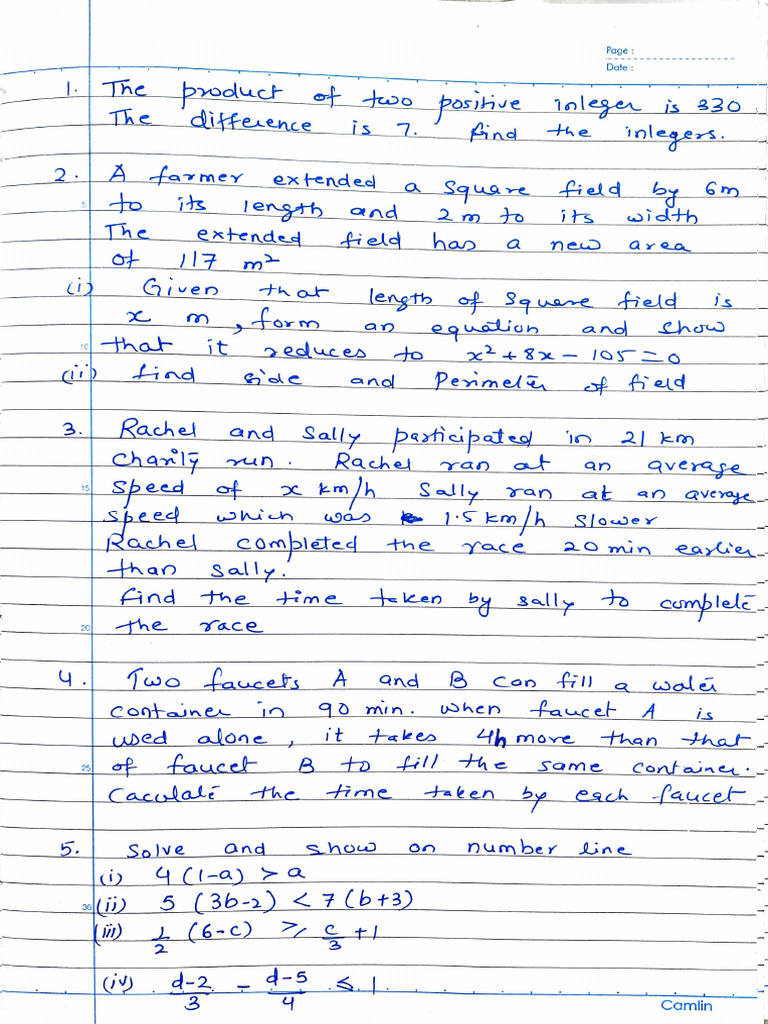 Page :
Date :
1. The product of two positive integer is 330
The difference is 7. Find the integers.
2. A farmer extended a square field by 6m
5 to its length and 2m to its width
The extended field has a new area
of 117 m²
(i) Given that length of square field is
x m, form an equation and show
10 that it reduces to x² + 8x - 105 = 0
(ii) find side and Perimeter of field
3. Rachel and Sally participated in 21 km
charity run. Rachel ran at an average
15 speed of x km/h Sally ran at an average
speed which was 1.5 km/h slower
Rachel completed the race 20 min earlier
than Sally.
Find the time taken by sally to complete
20 the race
4. Two faucets A and B can fill a water
container in 90 min. When faucet A is
used alone, it takes 4h more than that
25 of faucet B to fill the same container.
Caculate the time taken by each faucet
5. Solve and show on number line
(i) 4 (1-a) > a
30 (ii) 5 (3b-2) < 7 (b+3)
(iii) 1/2 (6-c) ≥ c/3 + 1
(iv) d-2/3 - d-5/4 ≤ 1
Camlin